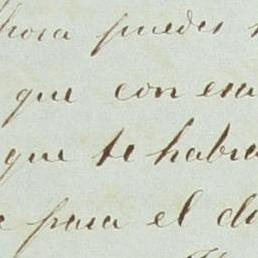 hora puedes
que con esa
que te habra
para el d